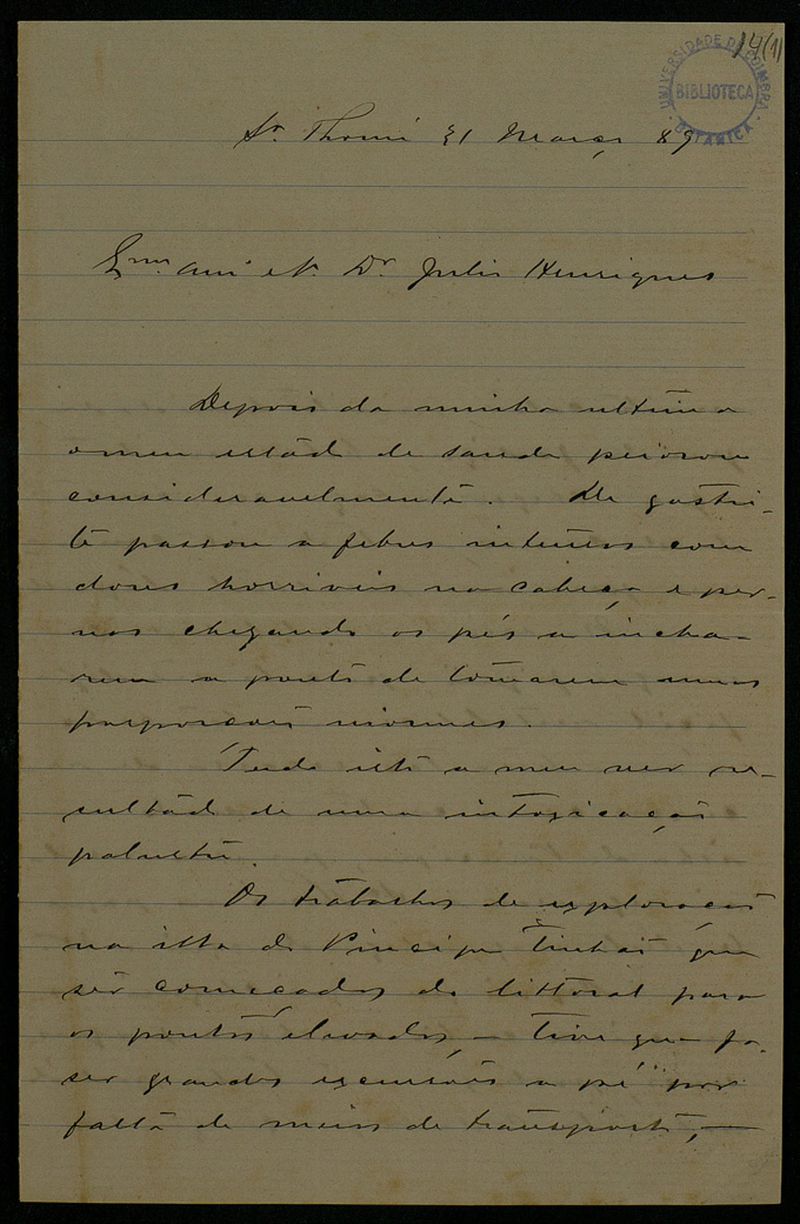 14(1)
UNIVERSIDADE DE COIMBRA
BIBLIOTECA
BOTANICA
Sn. Thomé 31 Março 89
Exmo. Am. e Sr. Dr. Julio Henriques
Depois da minha ultima
o meu estado de saude peiorou
consideravelmente. De gastri-
te passou a febres intensas com
dores horriveis na cabeça e per-
nas chegando os pés a incha-
rem a ponto de tomarem umas
porporções enormes.
Tudo isto a meu ver re-
sultado de uma intoxicação
palustre.
Os trabalhos de exploração
na ilha do Principe tinhão que
ser começados do littoral para
os pontos elevados, — Tive que fa-
ser grandes excursões a pé por
falta de meios de transporte, —